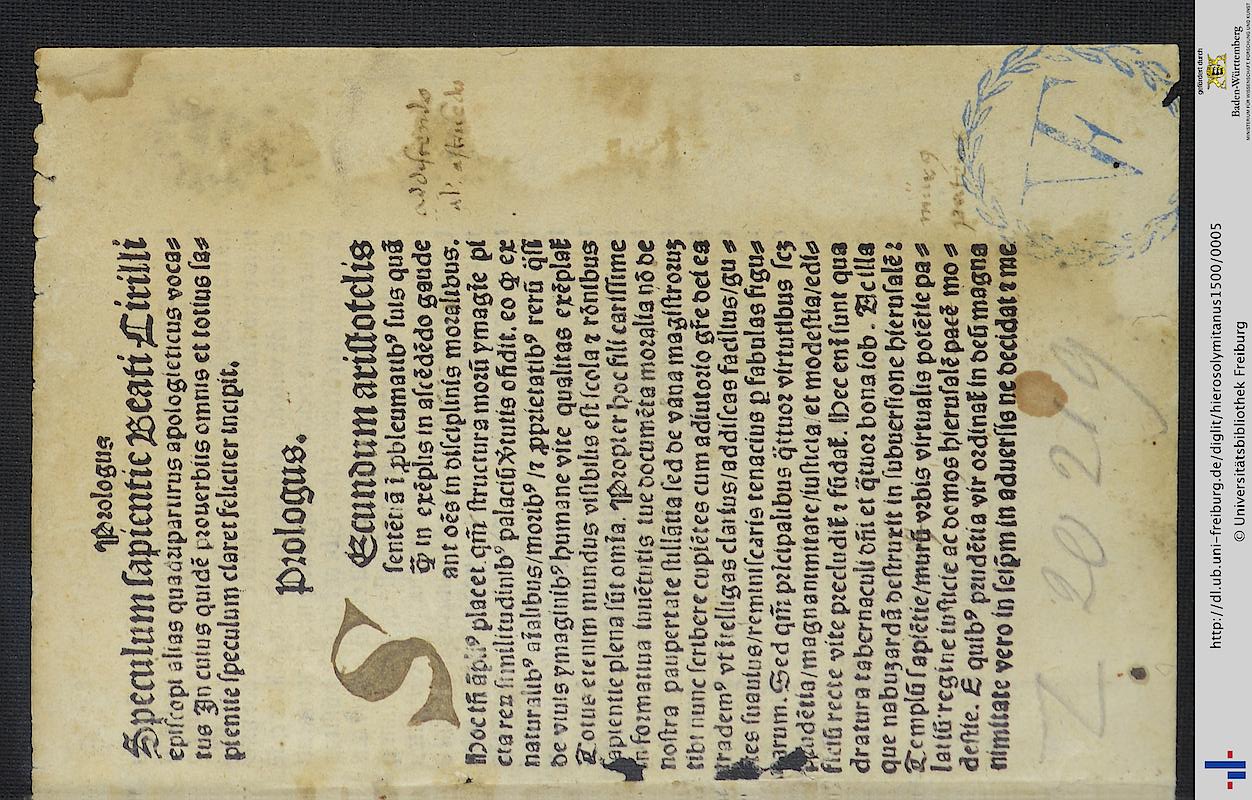 Prologus
Speculum sapientie Beati Cirilli
episcopi alias quadripartitus apologieticus voca=
tus In cuius quidē prouerbiis omnis et totius sa=
pientie speculum claret feliciter incipit.
Prologus.
SEcundum aristotelis
sentētiā ī ꝓbleumatibꝰ suis quā
qͣꝫ in exēplis in discēdēdo gaude
ant oēs in disciplinis moralibus.
Hoc tn̄ ampliꝰ placet qm̄ structura morū ymagīe pi
cta rerū similitudinibꝰ palaciū ꝟtutis ostendit. eo ꝙ ex
naturalibꝰ aīalibus/moribꝰ/ꝛ ꝓprietatibꝰ rerū q̄si
de viuis ymaginibꝰ humane vite qualitas exēplat̄
Totus etenim mundus visibilis est scola ꝛ rōnibus
sapientie plena sūt omīa. Propter hoc fili carissime
informatiua iuuētutis tue documēta moralia nō de
nostra paupertate stillātia sed de vena magistroruꝫ
tibi nunc scribere cupiētes cum adiutorio gr̄e dei ea
trademꝰ vt ītelligas clarius/addiscas facilius/gu=
stes suauius/reminiscaris tenacius ꝑ fabulas figu=
rarum. Sed qm̄ prīcipalibus q̄ttuor virtutibus scꝫ
prudētia/magnanimitate/iusticia/et modestia/edi=
ficiū recte vite precludit̄ ꝛ fūdat̄. Hec enī sunt qua
dratura tabernaculi dn̄i et q̄tuor bona iob. Ac illa
que nabuzardā destruxit in subuersione hierusalē:
Templū sapiētie/murū vrbis virtualis potētie pa=
latiū regine iusticie ac domos hierusalē pacē mo=
destie. E quibꝰ prudētia vir ordinat̄ in deū magna
nimitate vero in seipm in aduersis ne decidat ꝛ me
addiscendo
al. astruēdo
Z 20 219
gefördert durch
Baden-Württemberg
MINISTERIUM FÜR WISSENSCHAFT, FORSCHUNG UND KUNST
http://dl.ub.uni-freiburg.de/diglit/hierosolymitanus1500/0005
© Universitätsbibliothek Freiburg